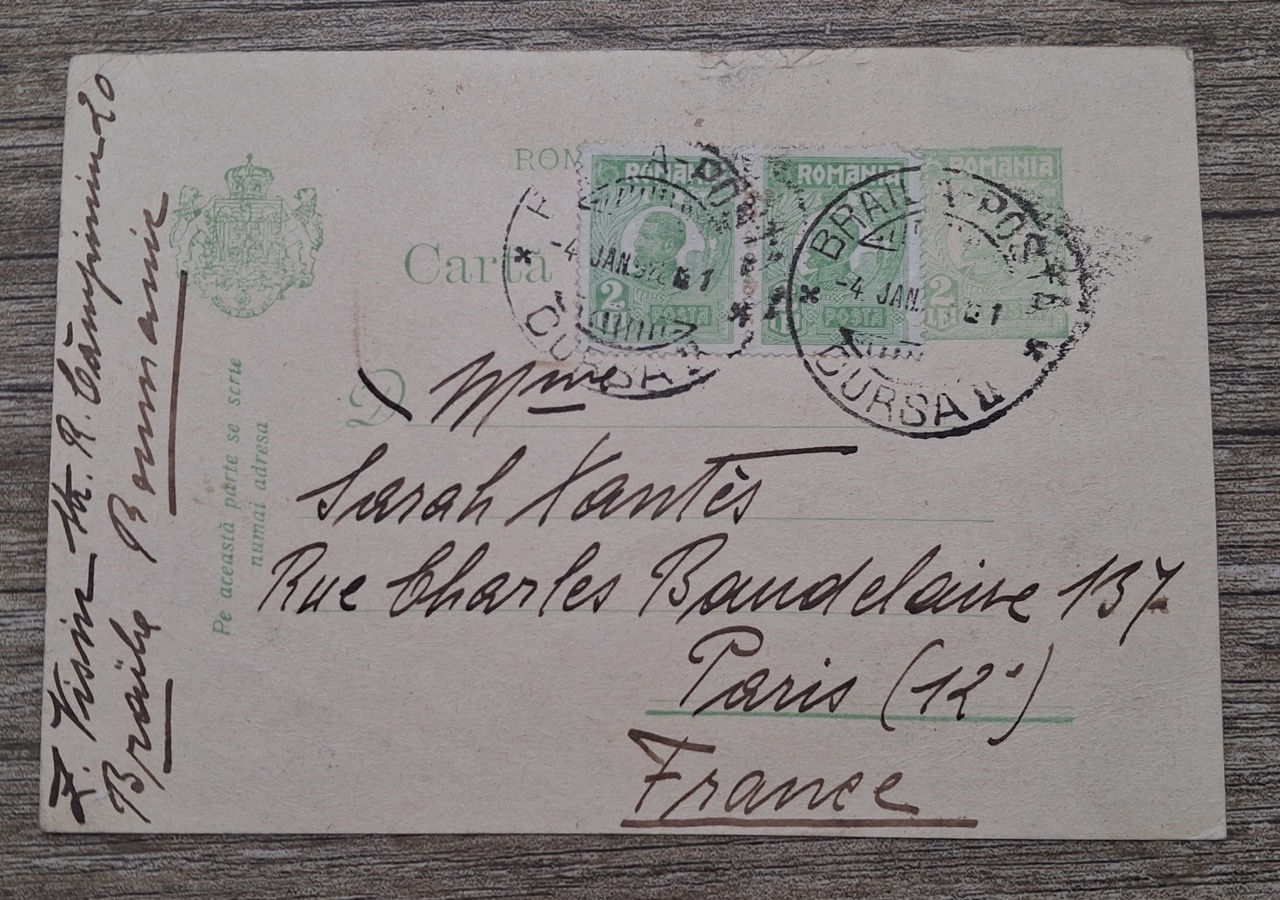 Z. Visin str. R. Câmpiniu 20
Brăila Roumanie
Pe această parte se scrie
numai adresa
ROM
Carta
ROMANIA
2
POSTA
ROMANIA
POSTA
ROMANIA
2
BRAILA-POSTA
-4 JAN
CURSA
BRAILA-POSTA
-4 JAN
CURSA
D
Mme
Sarah Xantès
Rue Charles Baudelaire 137
Paris (12e)
France